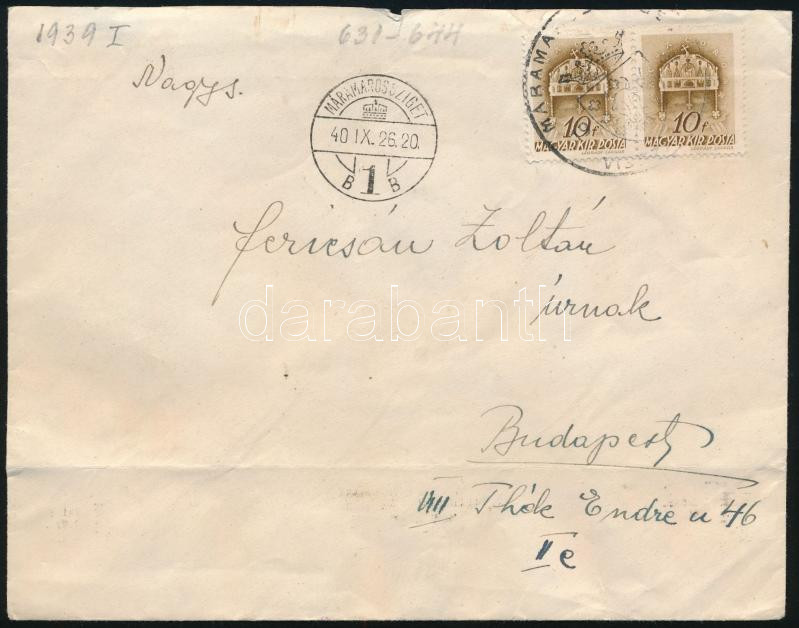 1939 I
631-644
Nagys.
MÁRAMAROSSZIGET
40 IX. 26. 20.
B 1 B
MÁRAMA
VIS
10f 10f
MAGYAR KIR. POSTA MAGYAR KIR. POSTA
Zoltán
úrnak
darabanth
Budapest
VIII Thék Endre u 46
II e